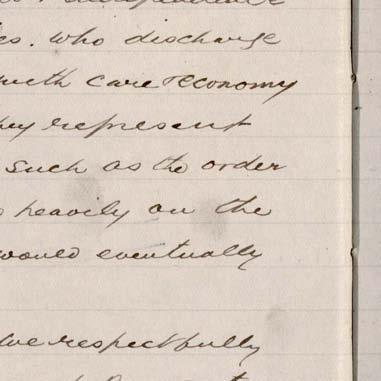 who discharge
with care & economy
they represent
such as the order
heavily on the
would eventually
We respectfully